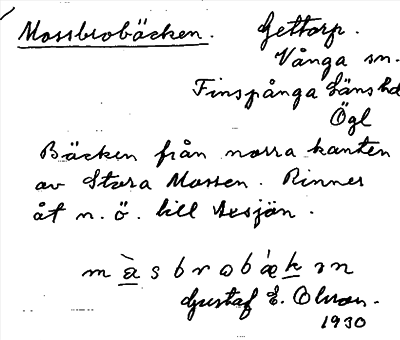 Mossbrobäcken.
Gettorp.
Vånga sn.
Finspånga Läns hd
Ögl
Bäcken från norra kanten
av Stora Mossen. Rinner
åt n. ö. till Axsjön.
m à s b r o b ǽ k ɜ n
Gustaf E. Olsson.
1930